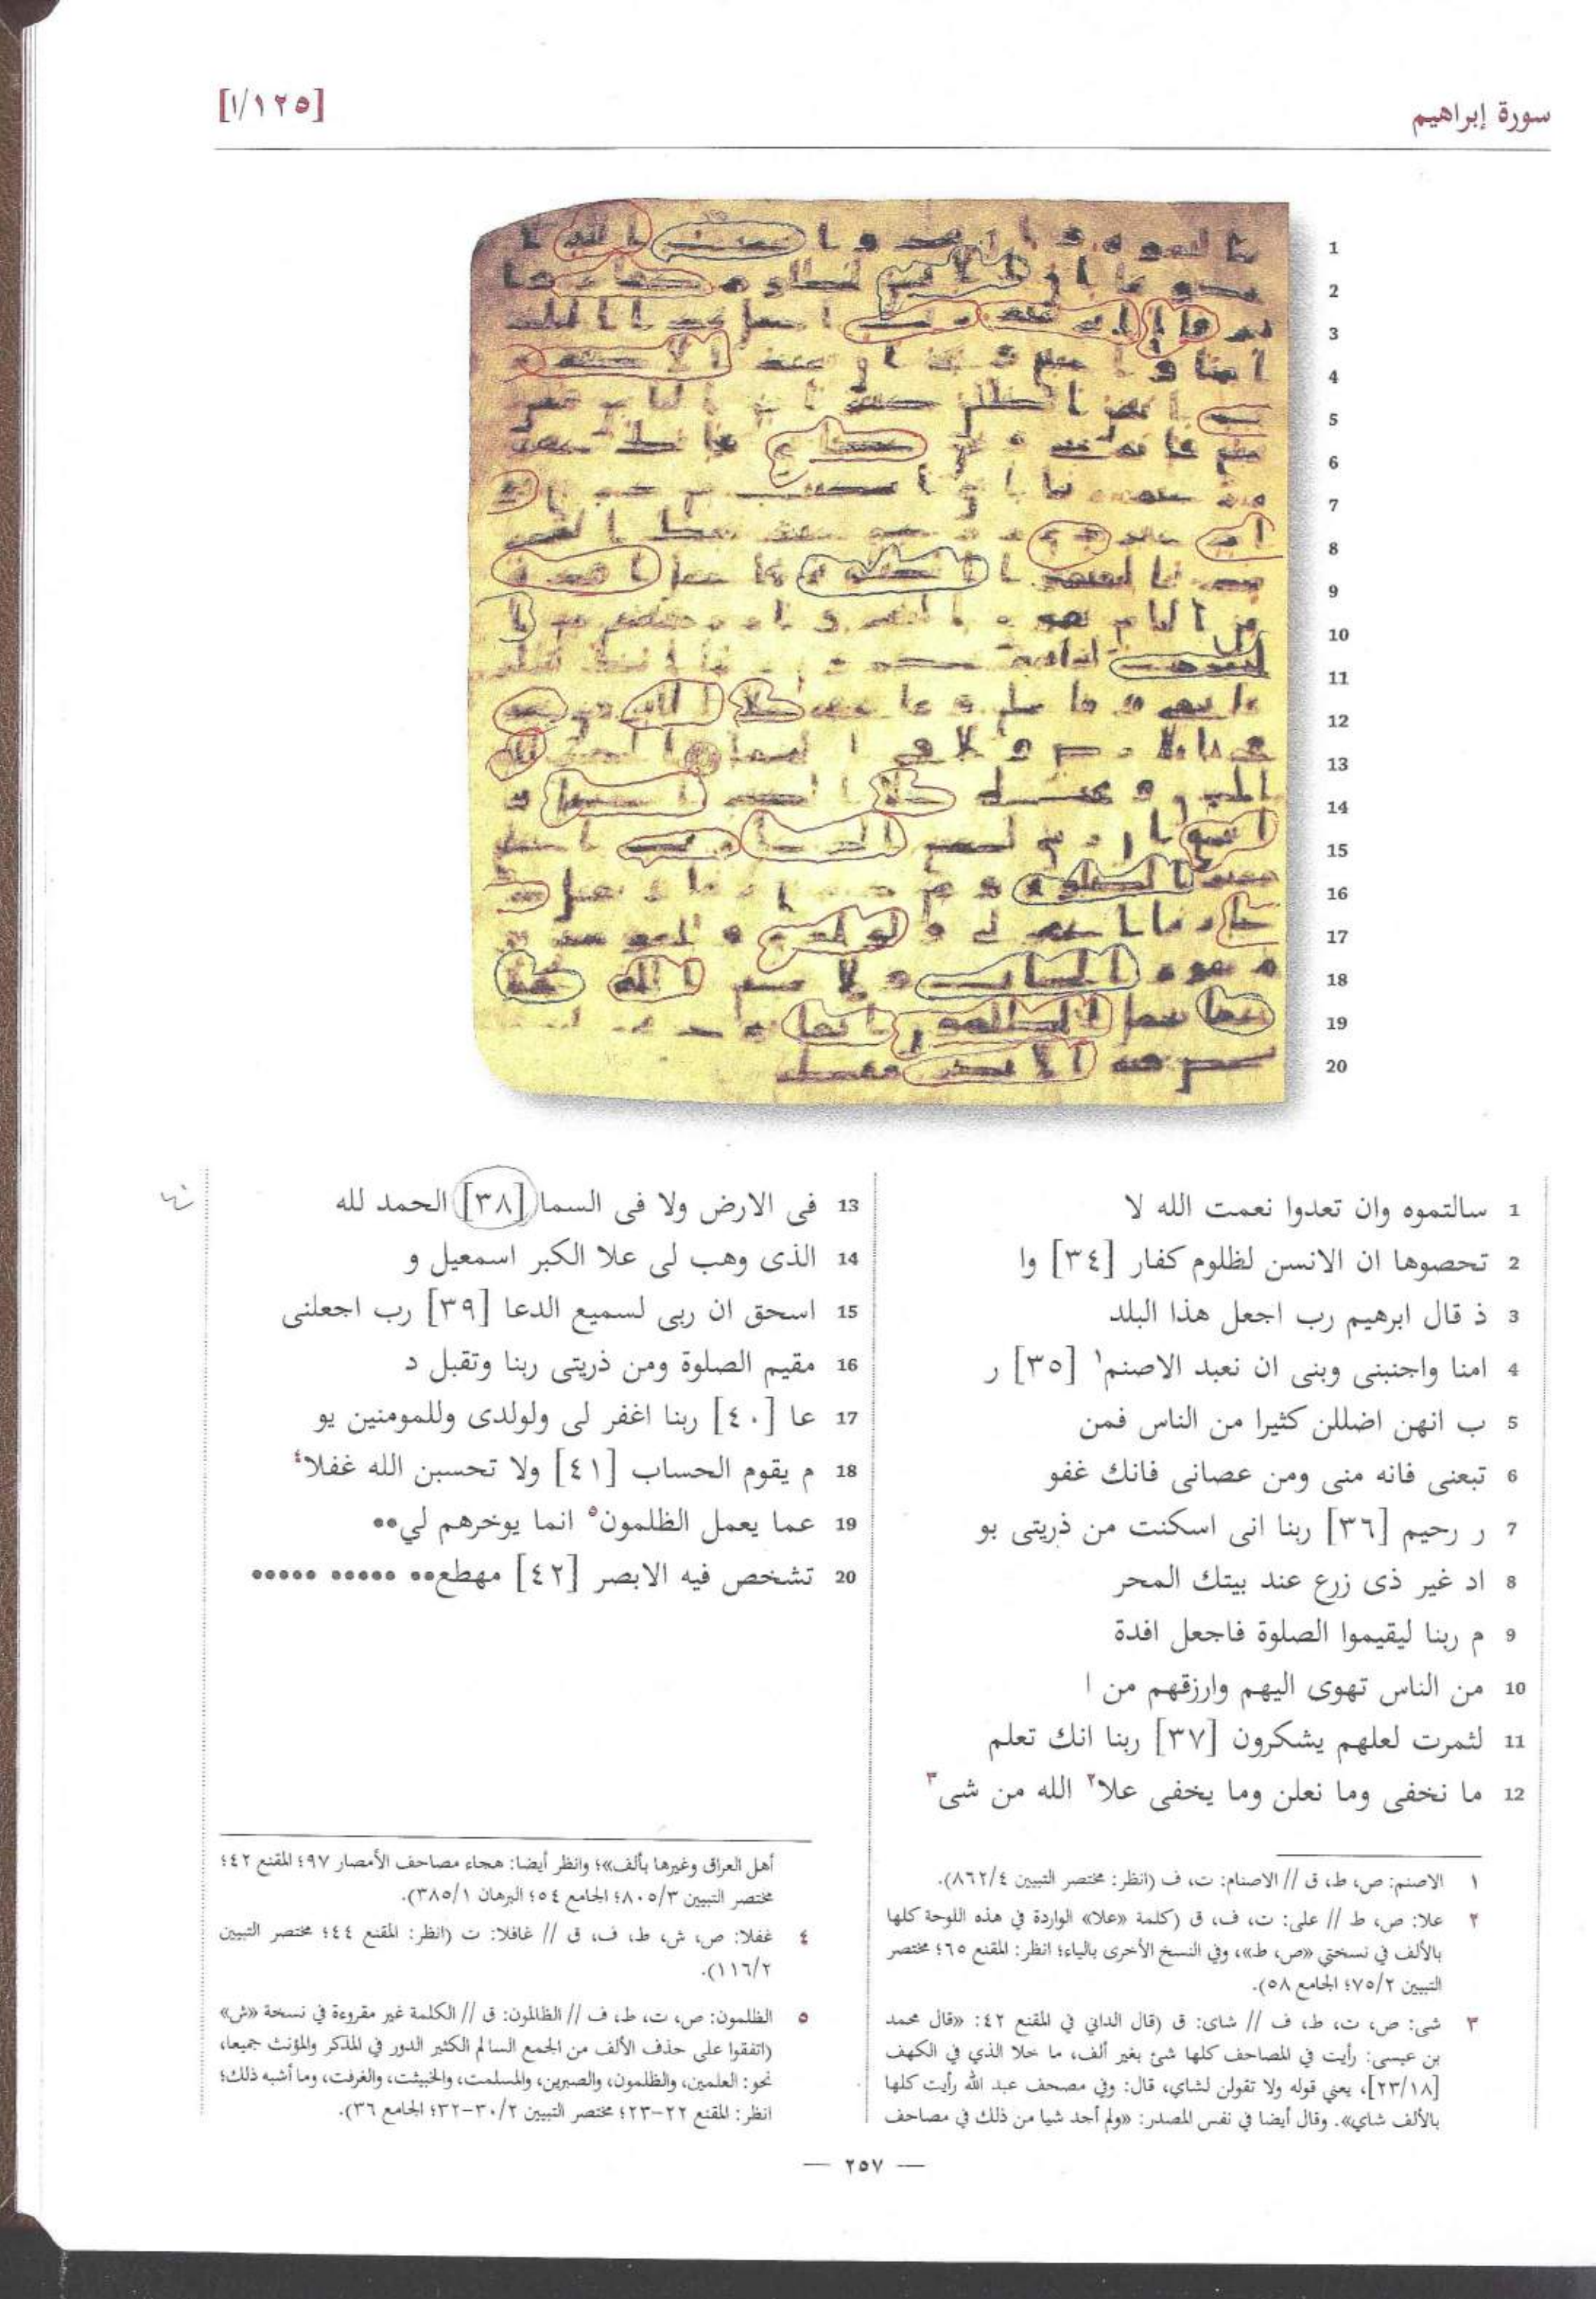 سورة إبراهيم
[١/١٢٥]
1 سالتموه وان تعدوا نعمت الله لا
2 تحصوها ان الانسن لظلوم كفار [٣٤] وا
3 ذ قال ابرهيم رب اجعل هذا البلد
4 امنا واجنبنى وبنى ان نعبد الاصنم١ [٣٥] ر
5 ب انهن اضللن كثيرا من الناس فمن
6 تبعنى فانه منى ومن عصانى فانك غفو
7 ر رحيم [٣٦] ربنا انى اسكنت من ذريتى بو
8 اد غير ذى زرع عند بيتك المحر
9 م ربنا ليقيموا الصلوة فاجعل افدة
10 من الناس تهوى اليهم وارزقهم من ا
11 لثمرت لعلهم يشكرون [٣٧] ربنا انك تعلم
12 ما نخفى وما نعلن وما يخفى علا٢ الله من شى٣
13 فى الارض ولا فى السما [٣٨] الحمد لله
14 الذى وهب لى علا الكبر اسمعيل و
15 اسحق ان ربى لسميع الدعا [٣٩] رب اجعلنى
16 مقيم الصلوة ومن ذريتى ربنا وتقبل د
17 عا [٤٠] ربنا اغفر لى ولولدى وللمومنين يو
18 م يقوم الحساب [٤١] ولا تحسبن الله غفلا٤
19 عما يعمل الظلمون٥ انما يوخرهم لي●●
20 تشخص فيه الابصر [٤٢] مهطع●● ●●●●● ●●●●●
١ الاصنم: ص، ط، ق // الاصنام: ت، ف (انظر: مختصر التبيين ٨٦٢/٤).
٢ علا: ص، ط // على: ت، ف، ق (كلمة «علا» الواردة في هذه اللوحة كلها
بالألف في نسختي «ص، ط»، وفي النسخ الأخرى بالياء؛ انظر: المقنع ٦٥؛ مختصر
التبيين ٧٥/٢؛ الجامع ٥٨).
٣ شى: ص، ت، ط، ف // شاى: ق (قال الداني في المقنع ٤٢: «قال محمد
بن عيسى: رأيت في المصاحف كلها شئ بغير ألف، ما خلا الذي في الكهف
[٢٣/١٨]، يعني قوله ولا تقولن لشاي، قال: وفي مصحف عبد الله رأيت كلها
بالألف شاي». وقال أيضا في نفس المصدر: «ولم أجد شيا من ذلك في مصاحف
أهل العراق وغيرها بألف»؛ وانظر أيضا: هجاء مصاحف الأمصار ٩٧؛ المقنع ٤٢؛
مختصر التبيين ٨٠٥/٣؛ الجامع ٥٤؛ البرهان ٣٨٥/١).
٤ غفلا: ص، ش، ط، ف، ق // غافلا: ت (انظر: المقنع ٤٤؛ مختصر التبيين
١١٦/٢).
٥ الظلمون: ص، ت، ط، ف // الظالمون: ق // الكلمة غير مقروءة في نسخة «ش»
(اتفقوا على حذف الألف من الجمع السالم الكثير الدور في المذكر والمؤنث جميعا،
نحو: العلمين، والظلمون، والصبرين، والمسلمت، والخبيثت، والغرفت، وما أشبه ذلك؛
انظر: المقنع ٢٢-٢٣؛ مختصر التبيين ٣٠/٢-٣٢؛ الجامع ٣٦).
— ٢٥٧ —